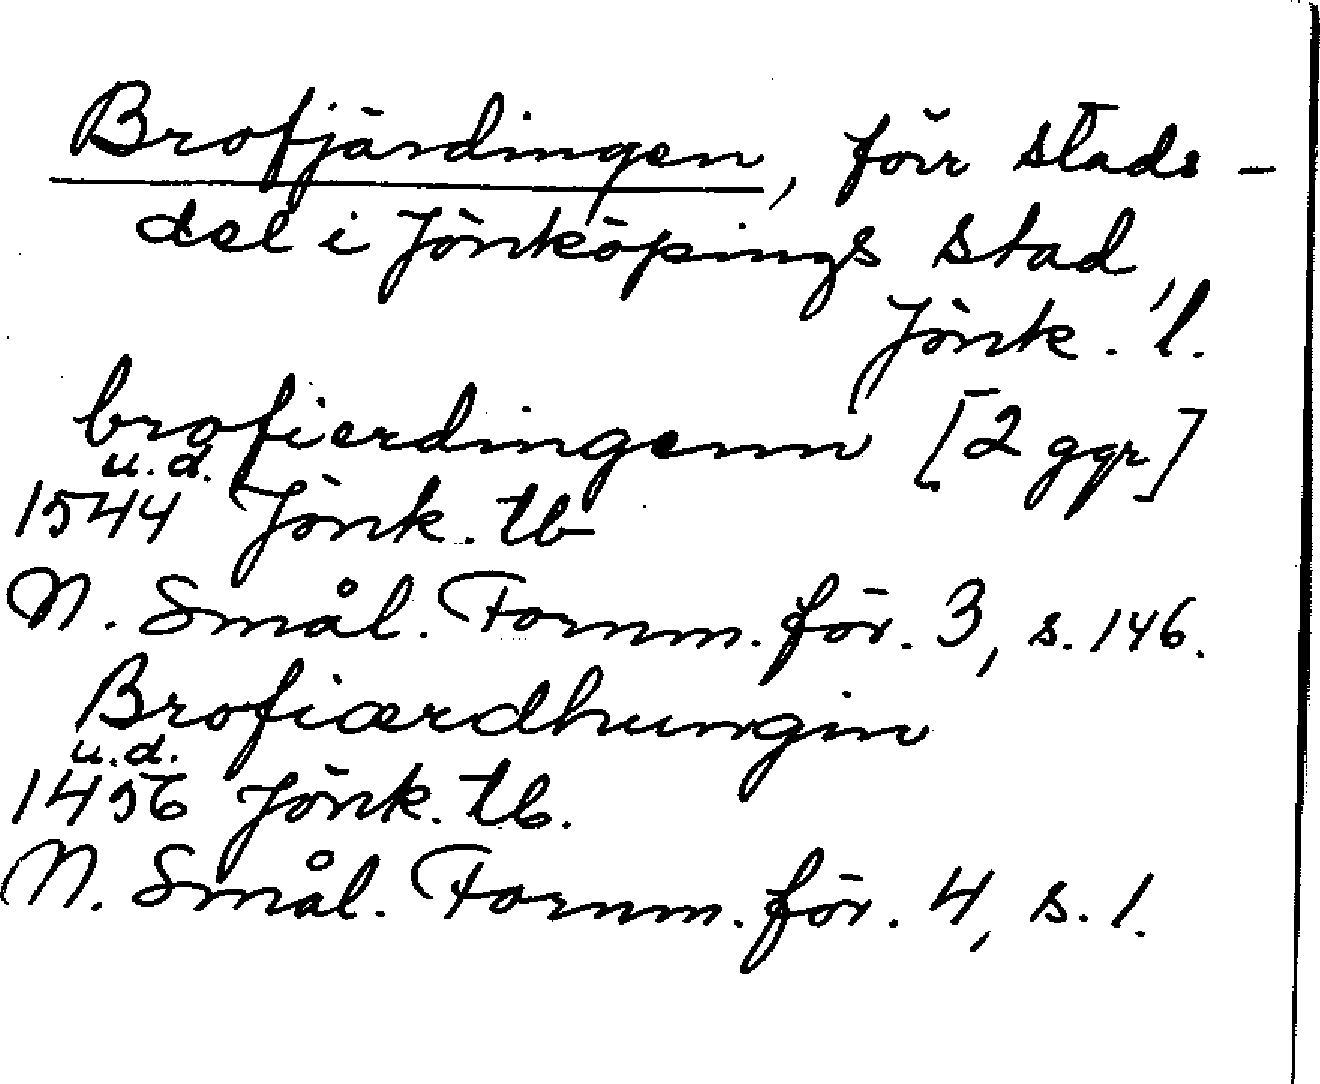 Brofjärdingen, förr stads-
del i Jönköpings stad,
Jönk. l.
brofierdingenn [2 ggr]
u.d.
1544 Jönk. tb
N. Smål. Fornm. för. 3, s. 146.
Brofiærdhungin
u.d.
1456 Jönk. tb.
N. Smål. Fornm. för. 4, s. 1.